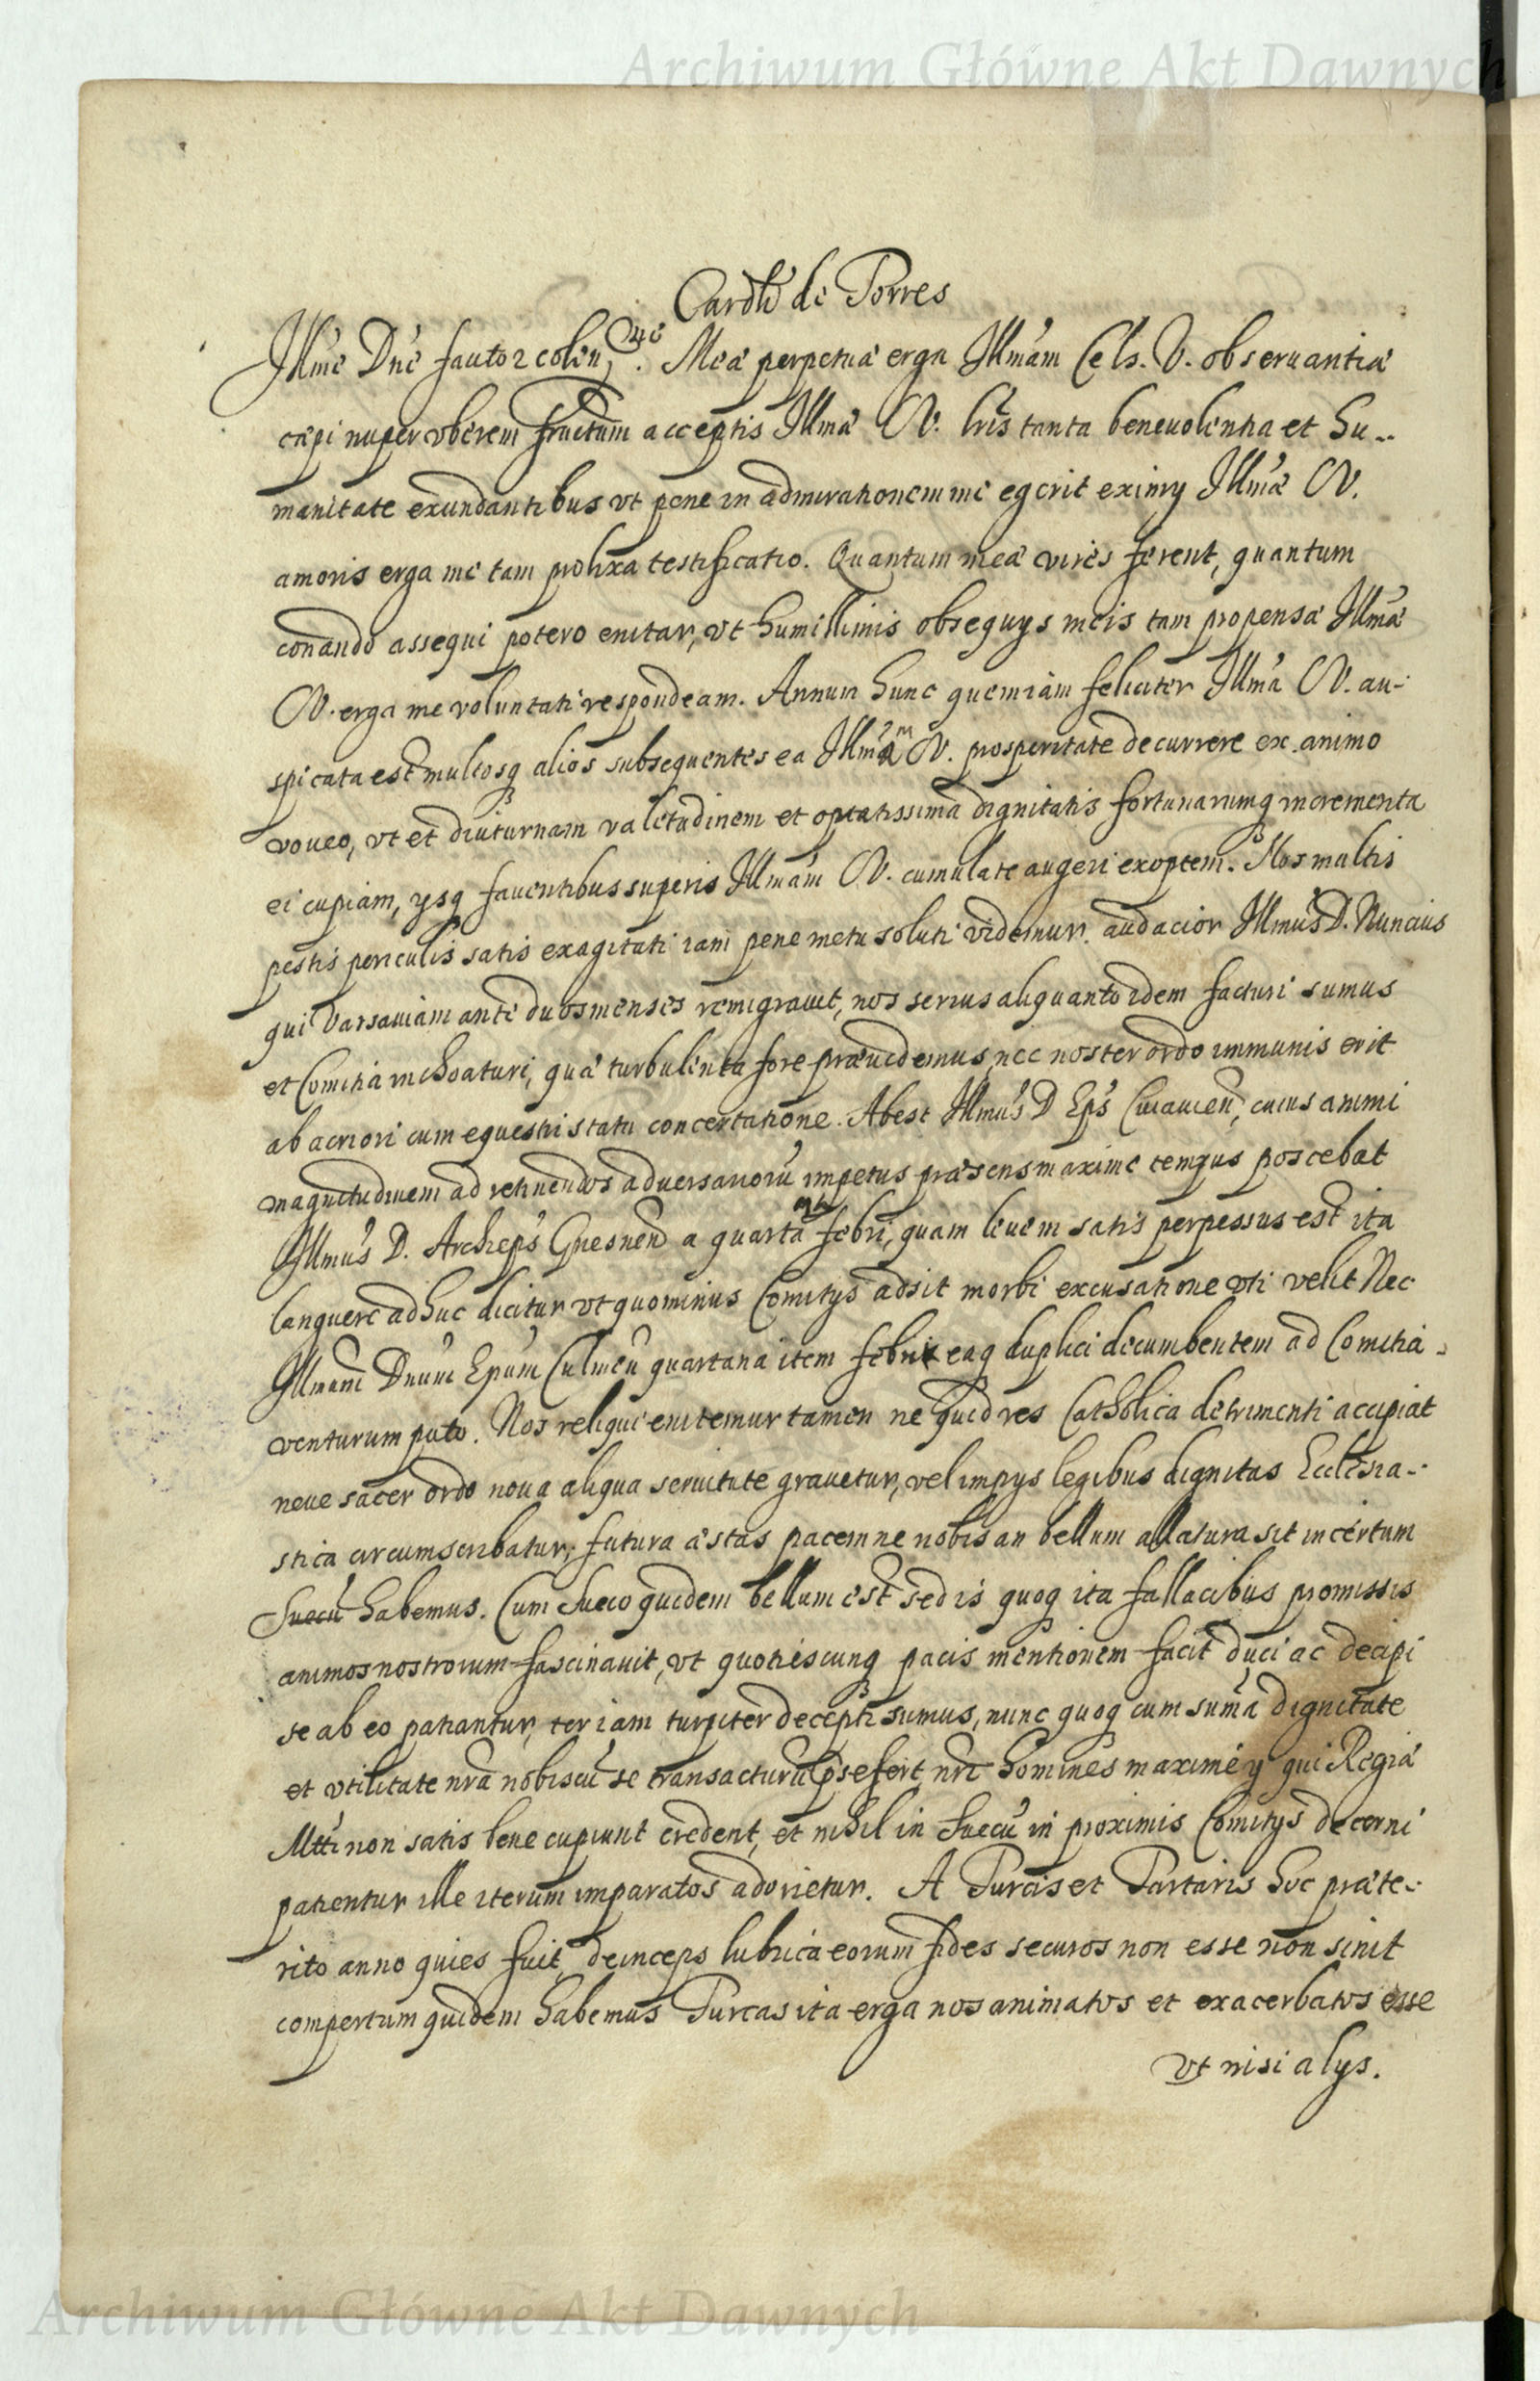 Archiwum Główne Akt Dawnych
Cardli de Torres
Illme Dne fautor colenme. Meæ perpetuæ erga Illmam Cels. V. obseruantiæ
cæpi nuper vberem fructum acceptis Illmæ CV. lris tanta beneuolentia et hu-
manitate exundantibus vt pene in admirationem me egerit eximy Illmæ CV.
amoris erga me tam prolixa testificatio. Quantum meæ vires ferent, quantum
conando assequi potero enitar, vt humillimis obsequys meis tam propensæ Illmæ
CV. erga me voluntati respondeam. Annum hunc quem iam feliciter Illma CV. au-
spicata est multosq alios subsequentes ea Illmam CV. prosperitate decurrere ex animo
voueo, vt et diuturnam valetudinem et optatissima dignitatis fortunarumq incrementa
ei cupiam, ysq fauentibus superis Illmam CV. cumulate augeri exoptem. Nos multis
pestis periculis satis exagitati iam pene metu soluti videmur. audacior Illmus D. Nuncius
qui Varsauiam ante duos menses remigrauit, nos serius aliquanto idem facturi sumus
et Comitia inchoaturi, quæ turbulenta fore præuidemus, nec noster ordo immunis erit
ab acriori cum equestri statu concertatione. Abest Illmus D Eps Cuiauien, cuius animi
magnitudinem ad retinendos aduersarioru impetus præsens maxime tempus poscebat
Illmus D. Archieps Gnesnen a quartana febri, quam leuem satis perpessus est ita
languere adhuc dicitur vt quominus Comitys adsit morbi excusatione vti velit Nec
Illmum Dnum Epum Culmen quartana item febri eaq duplici decumbentem ad Comitia
venturum puto. Nos reliqui enitemur tamen ne quid res Catholica detrimenti accipiat
neue sacer ordo noua aliqua seruitute grauetur, vel impys legibus dignitas Ecclesia-
stica circumscribatur; futura æstas pacem ne nobis an bellum allatura sit incertum
Suecu habemus. Cum Sueco quidem bellum est sed is quoq ita fallacibus promissis
animos nostrorum fascinauit, vt quotiescunq pacis mentionem facit duci ac decipi
se ab eo patiantur, ter iam turpiter decepti sumus, nunc quoq cum suma dignitate
et vtilitate nra nobiscu se transacturu præ se fert, nri homines maxime y qui Regiæ
Mtti non satis bene cupiunt credent, et nihil in Suecu in proximis Comitys decerni
patientur ille iterum imparatos adorietur. A Turcis et Tartaris hoc præte-
rito anno quies fuit, deinceps lubrica eorum fides securos non esse non sinit
compertum quidem habemus Turcas ita erga nos animatos et exacerbatos esse
vt nisi alys.
Archiwum Główne Akt Dawnych